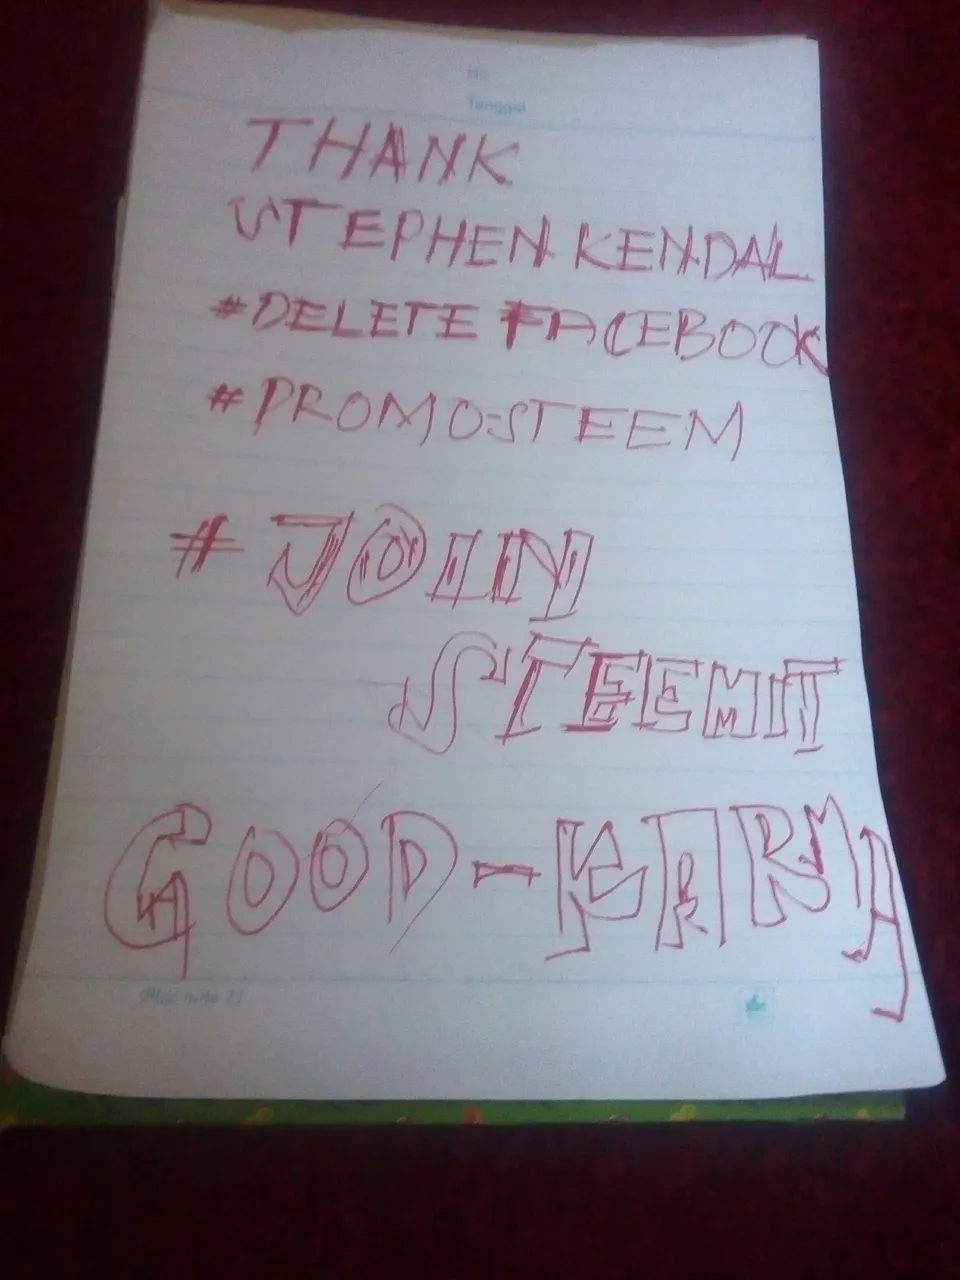 No
Tanggal
THANK
STEPHEN KENDAL
#DELETE FACEBOOK
#PROMO-STEEM
#JOIN
STEEMIT
GOOD-KARMA